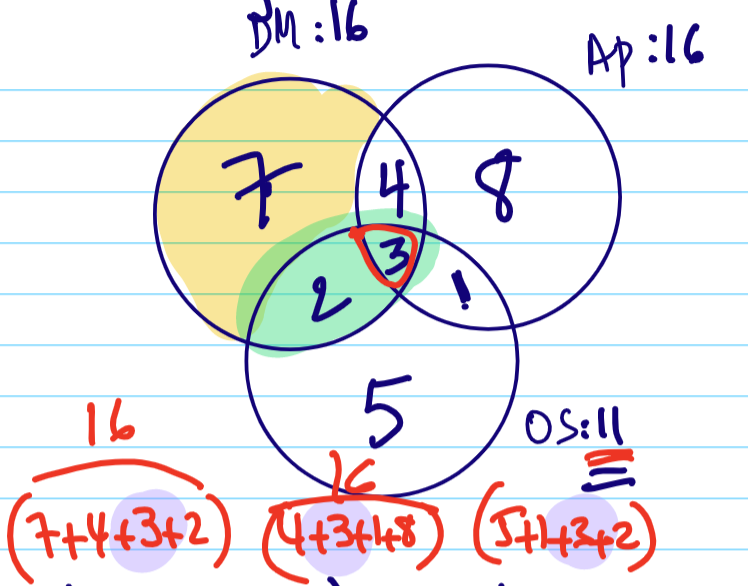 DM:16
Ap:16
7 4 8
3
2 1
5
OS:11
16 16
(7+4+3+2) (4+3+1+8) (5+1+3+2)